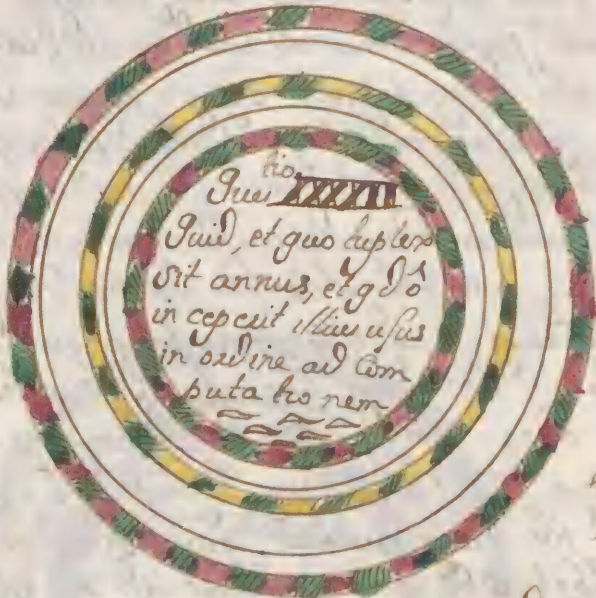 Ques tio
Quid, et quo tuplex
sit annus, et qdō
in ceperit illius usus
in ordine ad Com
puta tio nem